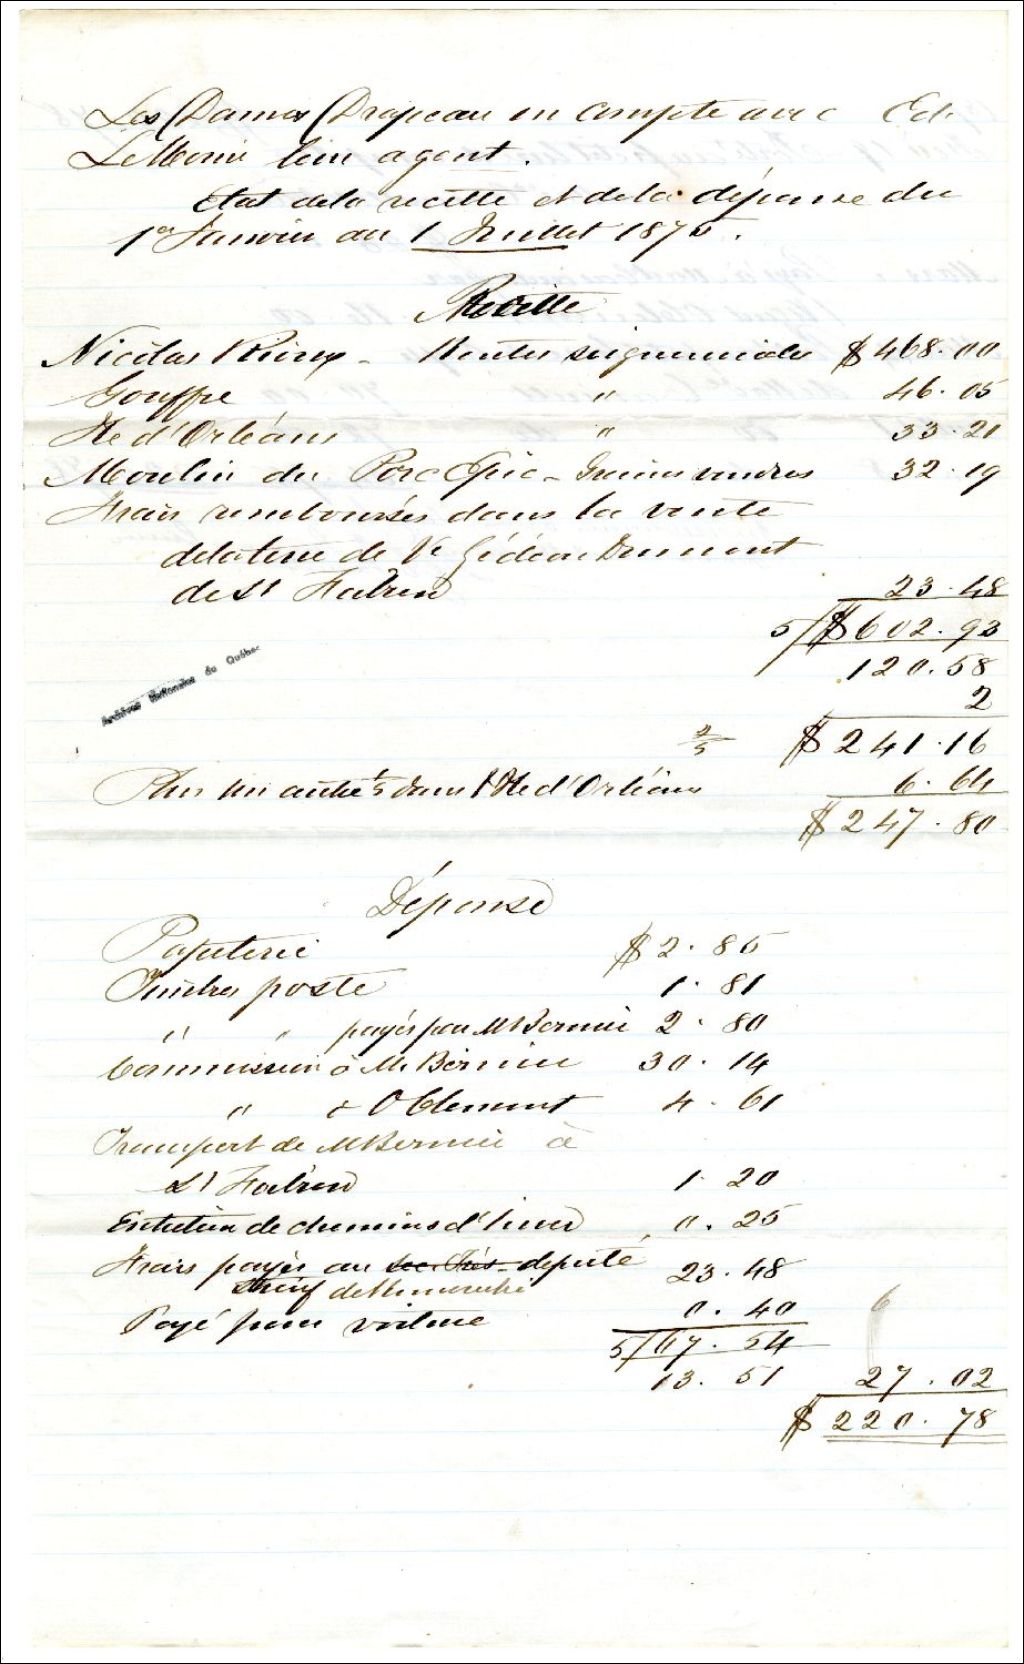 Les Dames Drapeau en compte avec Ed.
LeMoine leur agent.
Etat de la recette et de la dépense du
1er Janvier au 1 Juillet 1875.
Recette
Nicolas Rioux - Rentes seigneuriales $ 468.00
Gouffre " 46.05
Ile d'Orléans " 33.21
Moulin du Porc Epic - Grains vendus 32.19
Frais remboursés dans la vente
de la terre de Ve Gédéon Dumont
de St Fabien 23.48
5/$602.93
120.58
2
2/5 $241.16
Plus un autre 1/5 dans l'Ile d'Orléans 6.64
$247.80
Archives Nationales du Québec
Dépense
Papeterie $2.85
Timbres poste 1.81
" " payés par M Bernier 2.80
Commission à M. Bernier 30.14
" à O Clement 4.61
Transport de M Bernier à
St Fabien 1.20
Entretien de chemins d'hiver 0.25
Frais payés au député 23.48
Shérif de Rimouski
Payé pour voiture 0.40
5/67.54
13.51 27.02
$220.78